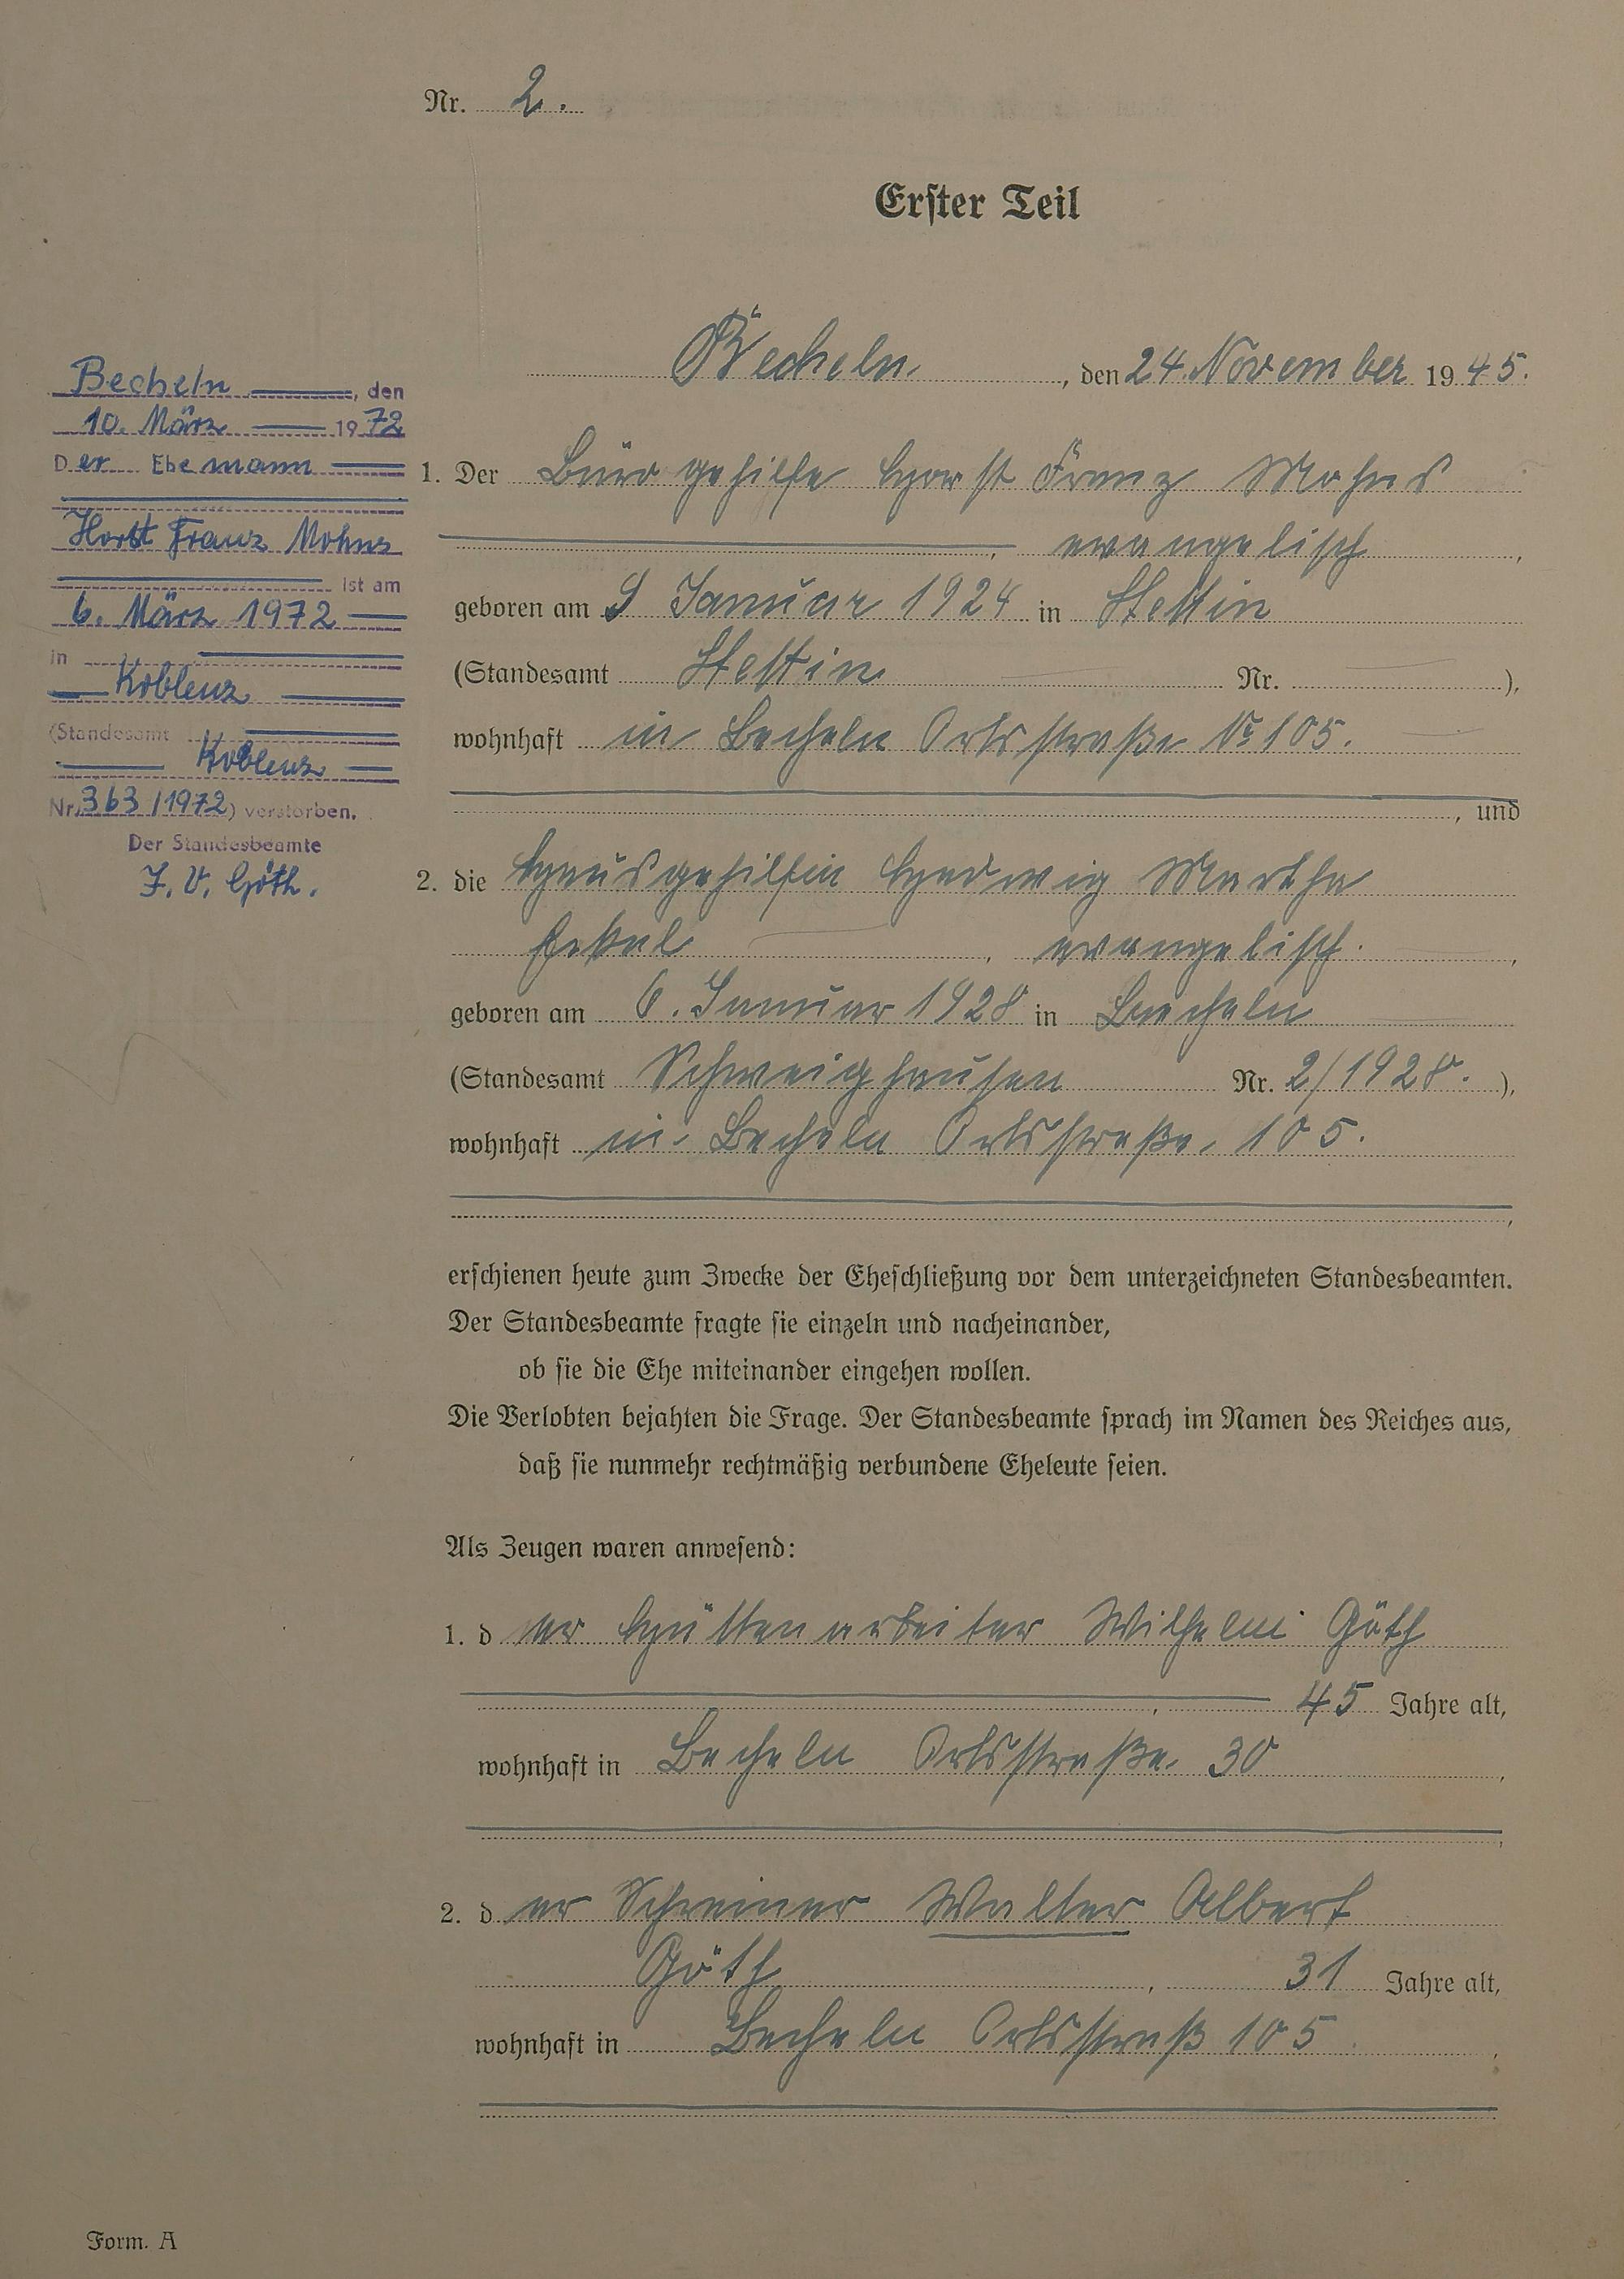 Nr. 2.
Erster Teil
Becheln, den 24. November 1945.
Becheln, den
10. März 1972
Der Ehemann
Horst Franz Mohns
ist am
6. März 1972
in
Koblenz
(Standesamt
Koblenz
Nr. 363/1972) verstorben.
Der Standesbeamte
J. V. Göth.
1. Der Bürogehilfe Horst Franz Mohns
, evangelisch,
geboren am 9 Januar 1924 in Stettin
(Standesamt Stettin Nr. ),
wohnhaft in Becheln Ortsstraße № 105.
, und
2. die Hausgehilfin Hedwig Martha
, evangelisch.,
geboren am 6. Januar 1928 in Becheln
(Standesamt Schweighausen Nr. 2/1928. ),
wohnhaft in Becheln Ortsstraße 105.
,
erschienen heute zum Zwecke der Eheschließung vor dem unterzeichneten Standesbeamten.
Der Standesbeamte fragte sie einzeln und nacheinander,
ob sie die Ehe miteinander eingehen wollen.
Die Verlobten bejahten die Frage. Der Standesbeamte sprach im Namen des Reiches aus,
daß sie nunmehr rechtmäßig verbundene Eheleute seien.
Als Zeugen waren anwesend:
1. der Hüttenarbeiter Wilhelm Göth
, 45 Jahre alt,
wohnhaft in Becheln Ortsstraße 30,
,
2. der Schreiner Walter Albert
Göth, 31 Jahre alt,
wohnhaft in Becheln Ortsstraß 105,
Form. A